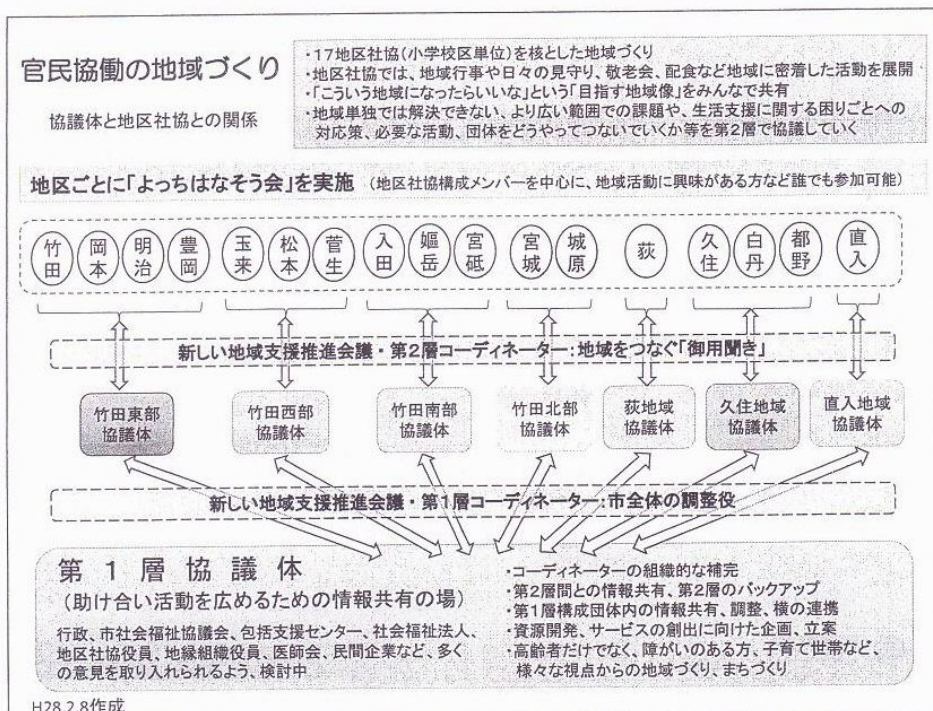 官民協働の地域づくり
協議体と地区社協との関係
・17地区社協(小学校区単位)を核とした地域づくり
・地区社協では、地域行事や日々の見守り、敬老会、配食など地域に密着した活動を展開
・「こういう地域になったらいいな」という「目指す地域像」をみんなで共有
・地域単独では解決できない、より広い範囲での課題や、生活支援に関する困りごとへの
対応策、必要な活動、団体をどうやってつないでいくか等を第2層で協議していく
地区ごとに「よっちはなそう会」を実施 (地区社協構成メンバーを中心に、地域活動に興味がある方など誰でも参加可能)
竹田 岡本 明治 豊岡 玉来 松本 菅生 入田 嫗岳 宮砥 宮城 城原 荻 久住 白丹 都野 直入
新しい地域支援推進会議・第2層コーディネーター:地域をつなぐ「御用聞き」
竹田東部協議体
竹田西部協議体
竹田南部協議体
竹田北部協議体
荻地域協議体
久住地域協議体
直入地域協議体
新しい地域支援推進会議・第1層コーディネーター:市全体の調整役
第1層協議体
(助け合い活動を広めるための情報共有の場)
行政、市社会福祉協議会、包括支援センター、社会福祉法人、
地区社協役員、地縁組織役員、医師会、民間企業など、多く
の意見を取り入れられるよう、検討中
・コーディネーターの組織的な補完
・第2層間との情報共有、第2層のバックアップ
・第1層構成団体内の情報共有、調整、横の連携
・資源開発、サービスの創出に向けた企画、立案
・高齢者だけでなく、障がいのある方、子育て世帯など、
様々な視点からの地域づくり、まちづくり
H28.2.8作成